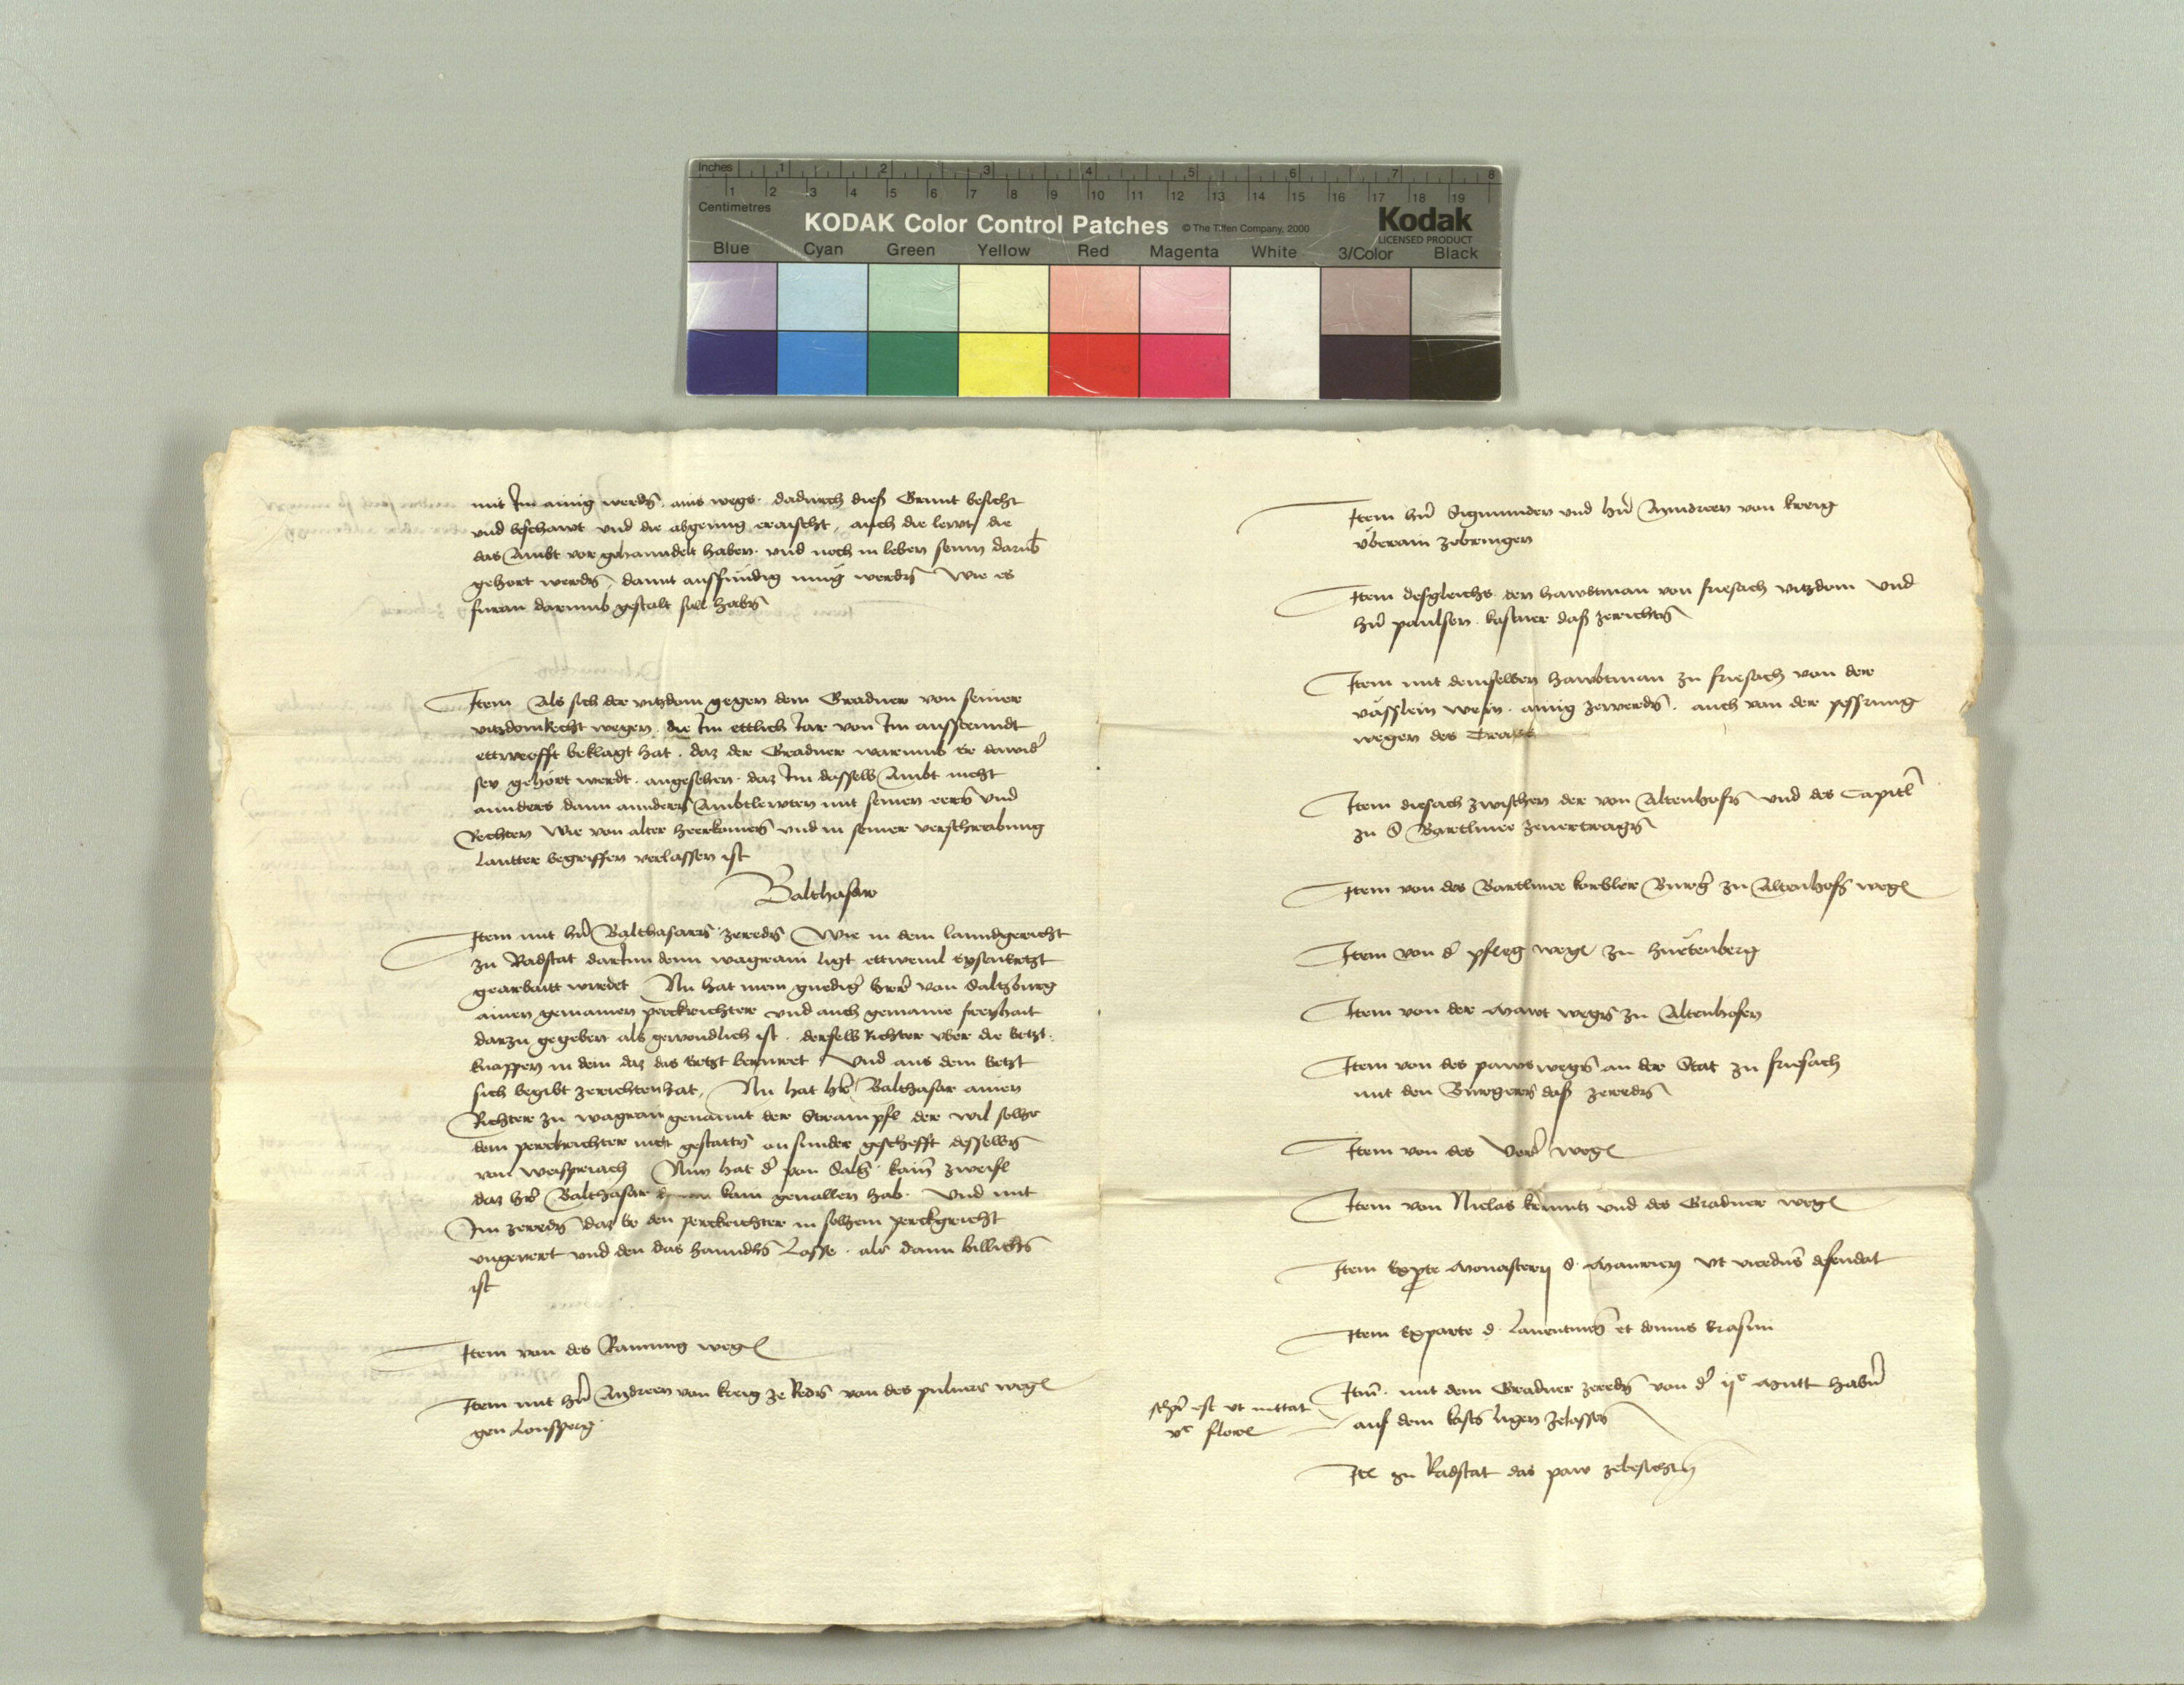 Inches 1 2 3 4 5 6 7 8
1 2 3 4 5 6 7 8 9 10 11 12 13 14 15 16 17 18 19
Centimetres
KODAK Color Control Patches © The Tiffen Company, 2000 Kodak
LICENSED PRODUCT
Blue Cyan Green Yellow Red Magenta White 3/Color Black
mit Im ainig werdn̄ ains wegs dadurch dieß Grunt besicht
und beschawt und die abgeung eraischt, auch die lewt die
das Ambt vor gehanndelt haben und noch in leben seinn darub̄
gehort werdn̄, damit ausfündig mug werdn̄ wie es
furan darumb gestalt sull habn̄
Item Als sich der vitzdom gegen dem Gradner von seiner
vitzdomkecht wegen die Im ettlich Jar von Im aussteundt
ettweofft beklagt hat, daz der Gradner warumb Er dawid̄
sey gehört werdt angesehen daz Im dasselb Ambt nicht
annders dann anndern̄ Ambtlewten mit seinen eern̄ und
Rechten wie von alter heerkomen̄ und in seiner verschreibung
lautter begriffen verlassen ist
Balthasar
Item mit hn̄ Balthasarn̄ zeredn̄ Wie in dem lanndgericht
zu Radstat darInn denn wagrain ligt ettwevil Eysenertzt
gearbaitt wirdet Nu hat mein gnediḡ herr̄ von Saltzburg
ainen gemainen perckrichter und auch gemaine freyhait
darzu gegeben als gewondlich ist, derselb Richter uber die Ertzt
knappen in dem daz das Ertzt beruret und aus dem Ertzt
sich begibt zerichten hat, Nu hat her̄ Balthasar ainen
Richter zu wagrain genannt der Strampfl der wil solhs
dem perckrichter nicht gestattn̄ on sunder geschefft desselbn̄
von weispriach Nun hat d̄ von Saltz̄ kain̄ zweifl
daz her̄ Balthasar kain geuallen hab und mit
Im zeredn̄ daz Er den perckrichter in solhem perckgericht
ungeirrt und den das hanndln̄ Lasse, als dann billichn̄
ist
Item von des Ramung wegn̄
Item mit hn̄ Andreen von kreig ze Redn̄ von des pulvers wegn̄
gen Lonsperg
Item hn̄ Sigmunden und hn̄ Anndreen von kreig
überain zebringen
Item desgleichs den hawbtman von friesach vitzdom und
hn̄ paulsen kastner daß zerichtn̄
Item mit demselben hawbtman zu friesach von der
vässlein wein ainig zewerdn̄ auch von der pessrung
wegen des
Item diesach zwischen der von Altenhofn̄ und des Capitl̄
zu S Bartlmee zeuertragn̄
Item von des Bartlmee korbler Burḡ zu Altenhofn̄ wegn̄
Item von d̄ pfleg wegn̄ zu huetenberg
Item von der Mawt wegn̄ zu Altenhofen
Item von des paws wegn̄ an der Stat zu friesach
mit den Burgern̄ daß zeredn̄
Item von des wegn̄
Item von Niclas krnntz und des Gradner wegn̄
Item Exp̄te Monasterij S Mauricij ut vicedn̄s defendat
Item Exparte d Laurentinen̄ et domus Erasmi
Itm̄ mit dem Gradner zeredn̄ von d̄ ijᶜ Mutt habern̄
auf dem kastn̄ ligen zelassen̄
sc̄pt est ut mittat
vᶜ floren̄
Itē zu Radstat das paw zebesichtn̄